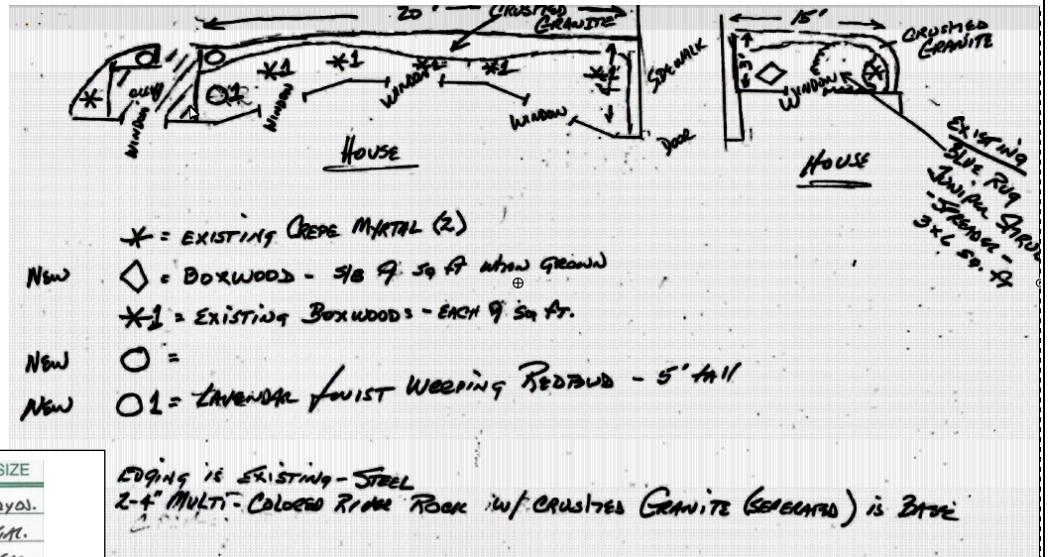 20' CRUSHED
GRANITE
15'
CRUSHED
GRANITE
SIDEWALK
3'
WINDOW
WINDOW
WINDOW
WINDOW
WINDOW
DOOR
HOUSE
HOUSE
EXISTING
BLUE RUG
JUNIPER SHRUB
- SPREADER -
3x6 SQ. FT
* = EXISTING CREPE MYRTAL (2)
NEW ◇ = BOXWOOD - S/B 9 SQ FT WHEN GROWN
*1 = EXISTING BOXWOODS - EACH 9 SQ FT.
NEW ○ =
NEW ○1 = LAVENDAR TWIST WEEPING REDBUD - 5' TALL
EDGING IS EXISTING - STEEL
2-4" MULTI-COLORED RIVER ROCK W/ CRUSHED GRANITE (SEPERATED) IS BASE
SIZE
GAL.